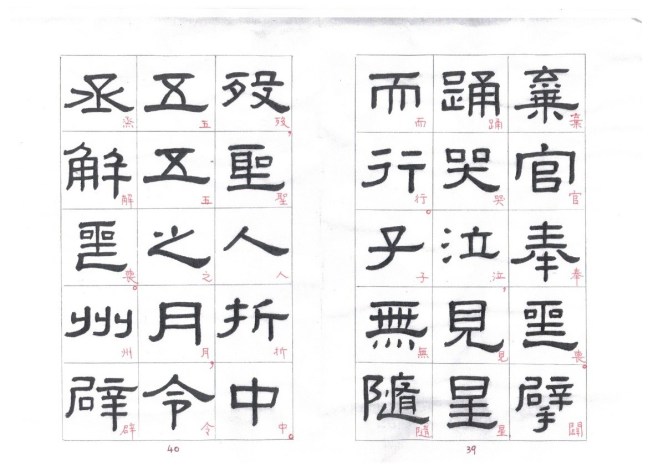 棄官奉喪擗
棄官奉喪。
踊哭泣見星
踊哭泣,見星
而行子無隨
而行。子無隨
39
歿聖人折中
歿,聖人折中。
五五之月令
五五之月,令
丞解喪州辟
丞解喪。州辟
40